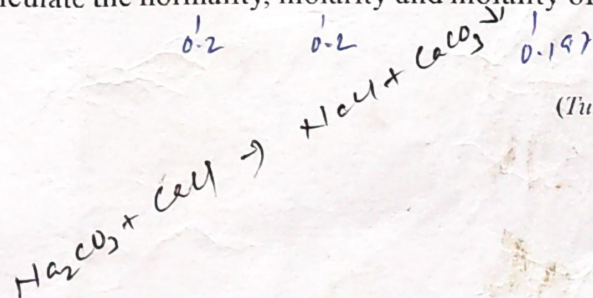 culate the normality, molarity and molality of
0.2 0.2 0.197
(Tu
Na₂CO₃ + CaCl → NaCl + CaCO₃